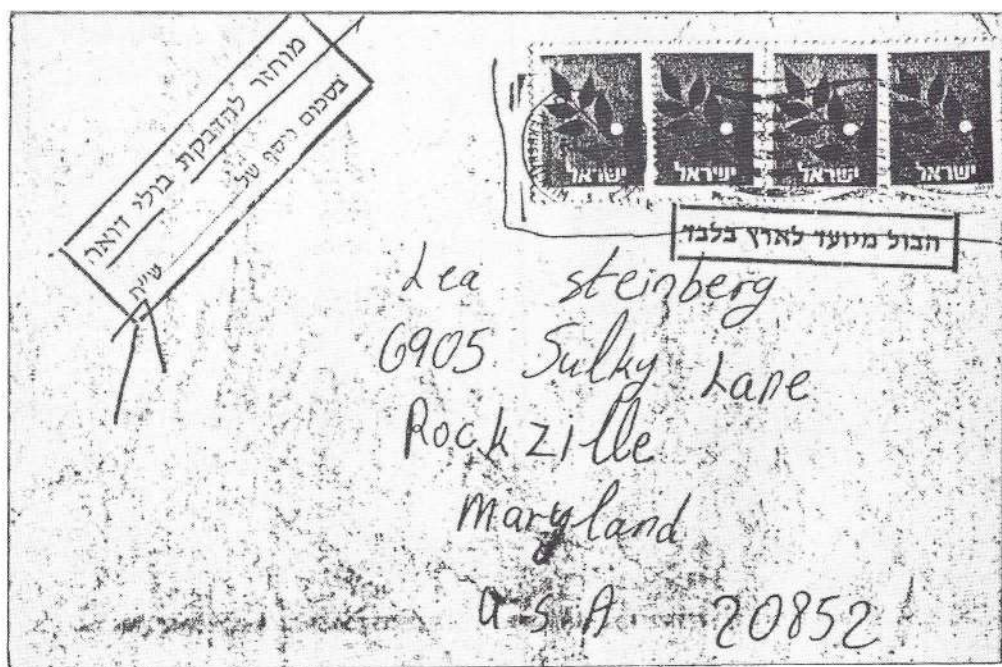 מוחזר להדבקת בולי דואר
בסכום נוסף של
ש״ח
ישראל
ישראל
ישראל
ישראל
הבול מיועד לארץ בלבד
Lea steinberg
6905 Sulky Lane
Rockzille
Maryland
U S A 20852